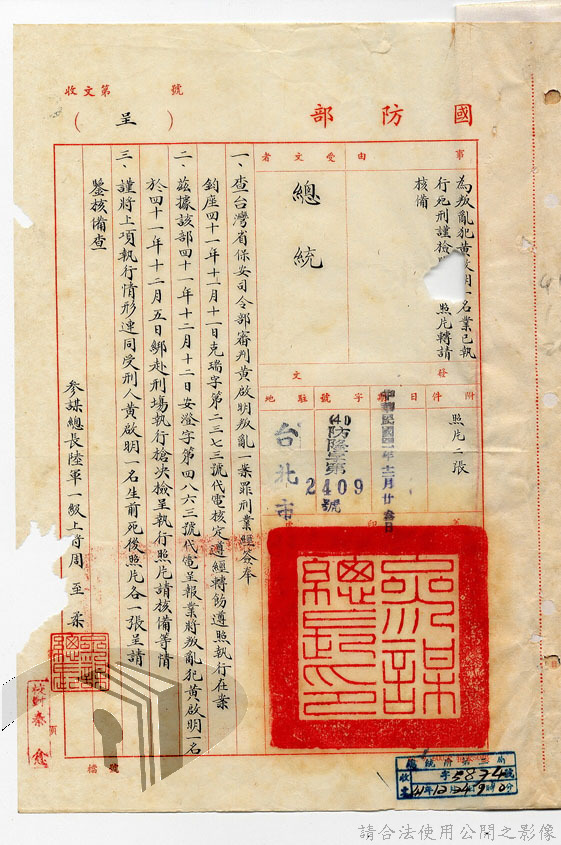 收文第　　號
國防部
（呈）
事由
為叛亂犯黃啟明一名業已執
行死刑謹檢　照片轉請
核備
受文者
總統
附件
照片二張
發文
日期
中華民國四十一年十二月廿　日
字號
(41)防隆字第
2409
號
駐地
台北市
一、查台灣省保安司令部審判黃啟明叛亂一案罪刑業經簽奉
鈞座四十一年十一月十一日克瑞字第二三七三號代電核定遵經轉飭遵照執行在案
二、茲據該部四十一年十二月十二日安澄字第四八六三號代電呈報業將叛亂犯黃啟明一名
於四十一年十二月五日綁赴刑場執行槍決檢呈執行照片請核備等情
三、謹將上項執行情形連同受刑人黃啟明一名生前死後照片各一張呈請
鑒核備查
參謀總長陸軍一級上將周至柔
參謀總長印
檔號
總統府第二局
收文
字5874號
41年12月24日9時0分
請合法使用公開之影像